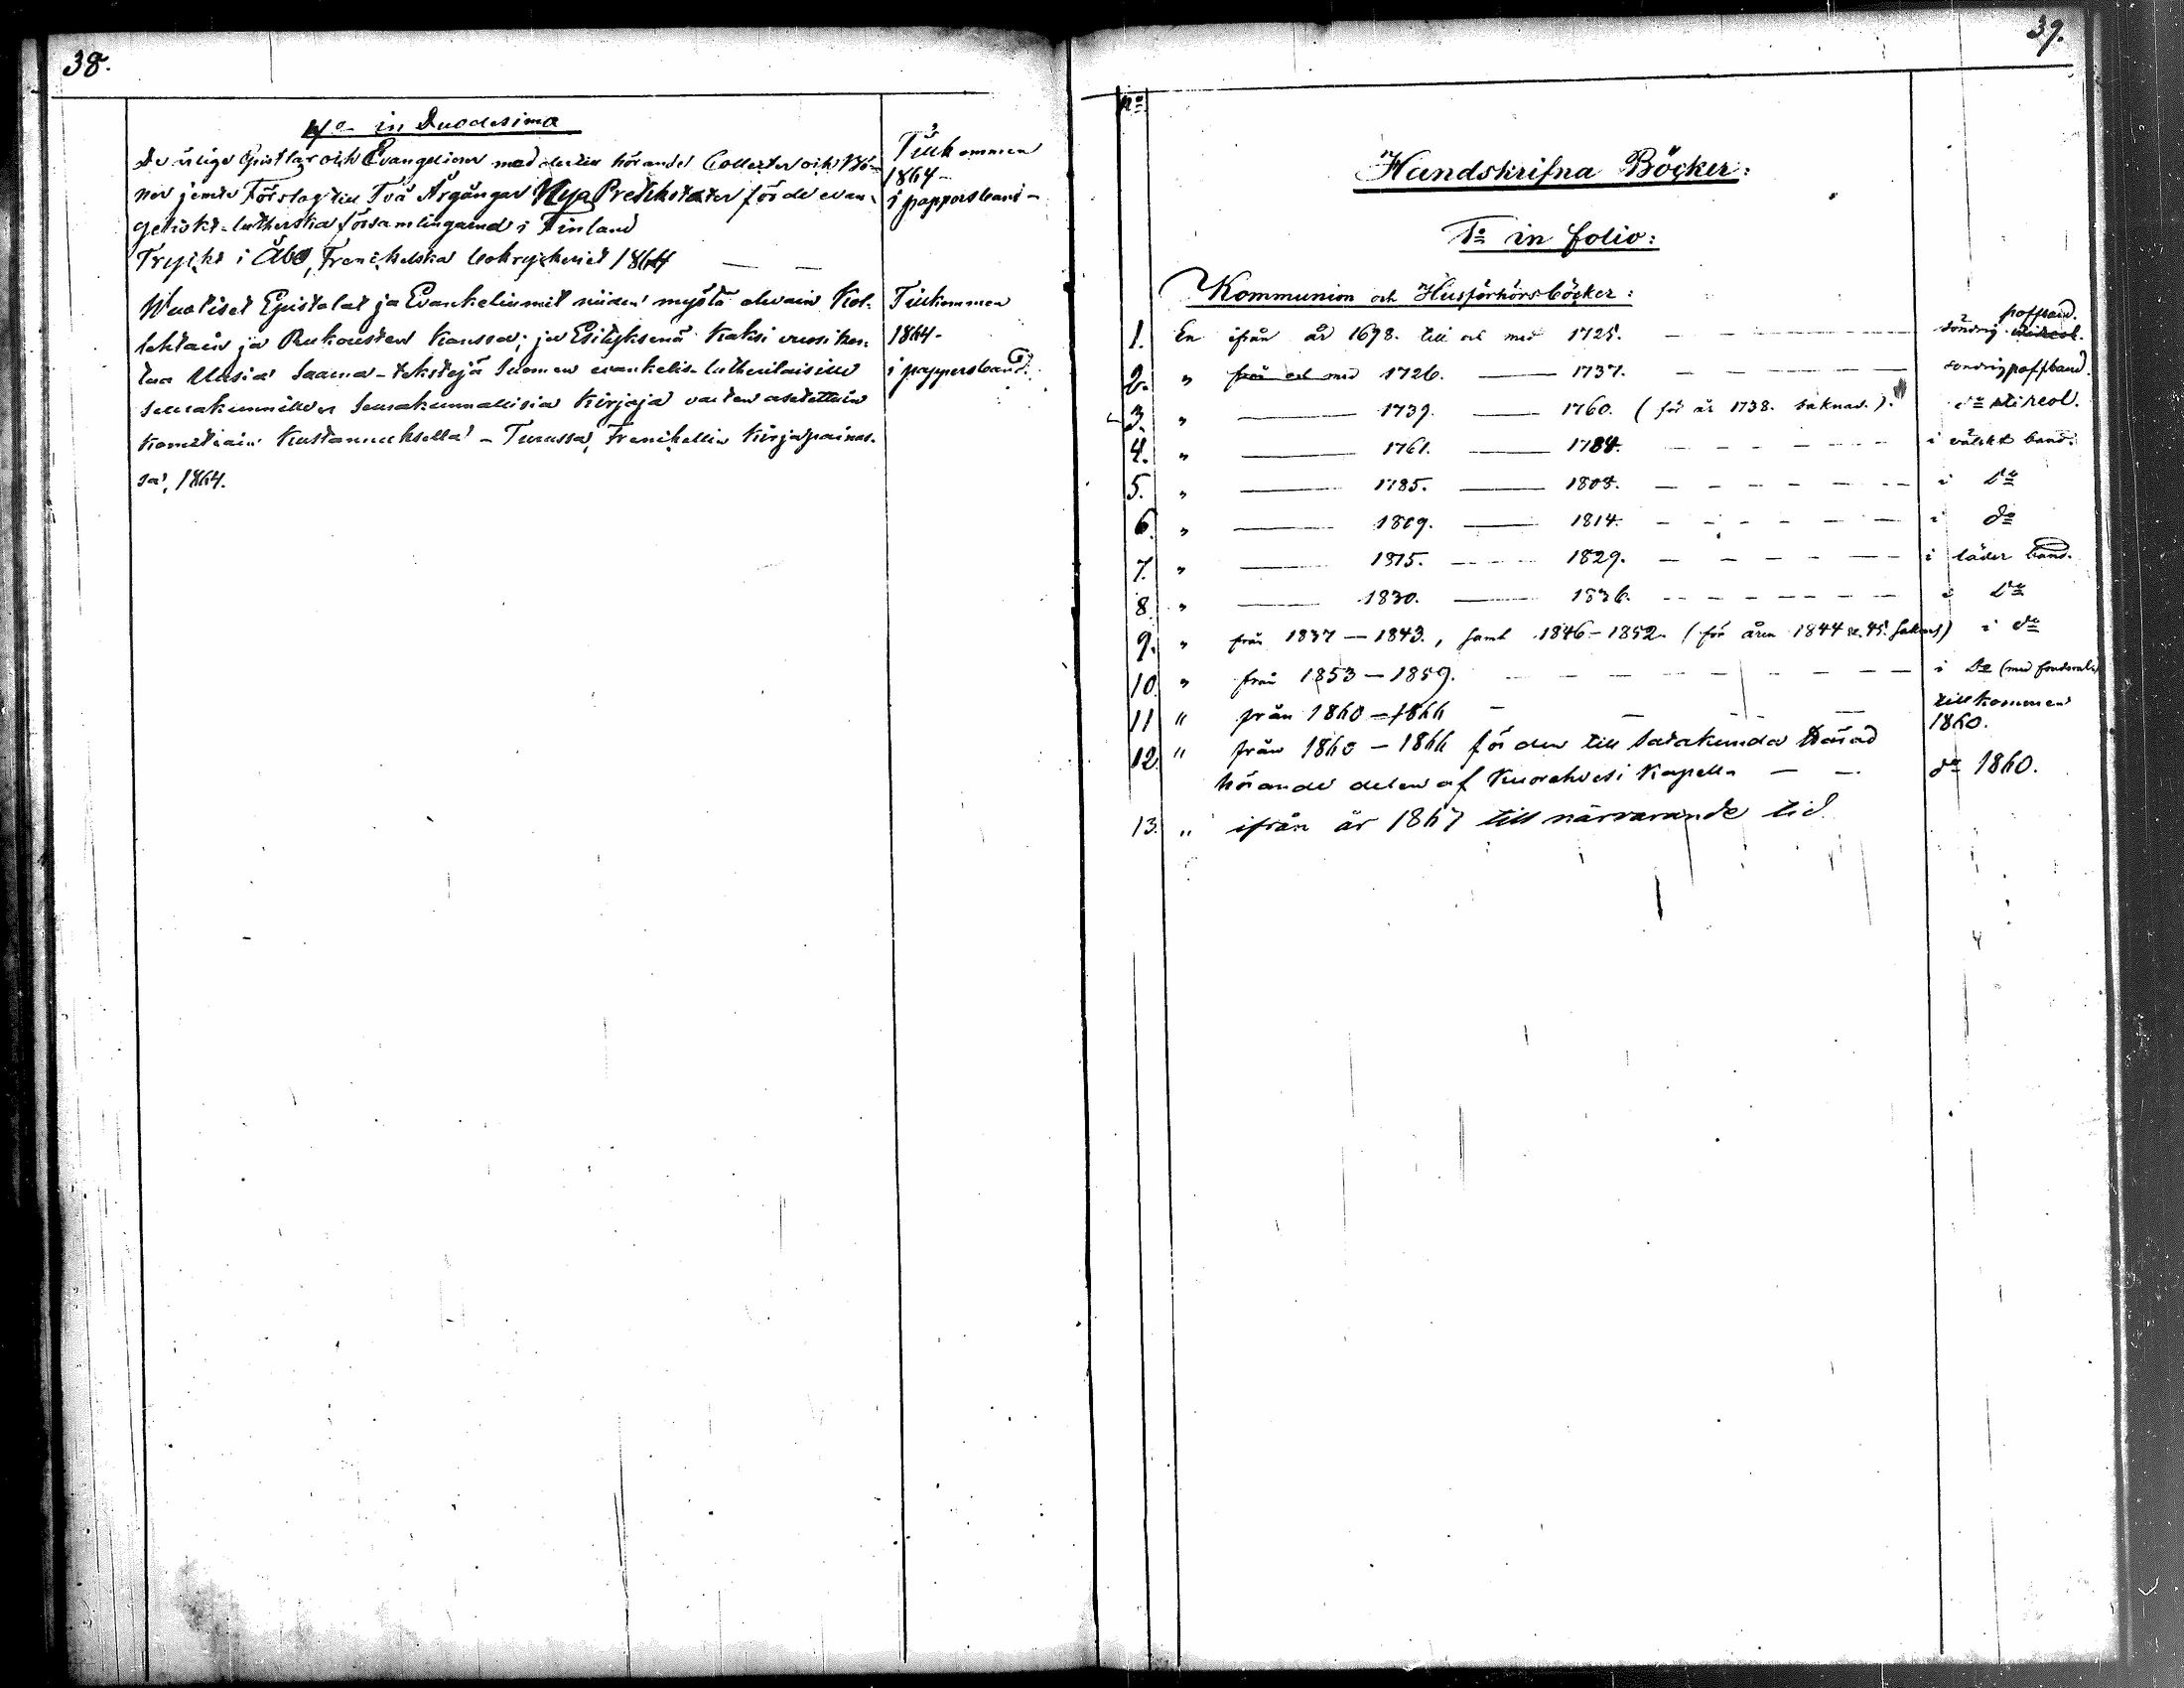 38.
4o in Duodesima
De årlige Epistlar och Evangelier med dertill hörande Collecter och Bö-
ner jemte Förslag till Två Årgångar Nya Predikotexter för de evan-
geliskt-lutherska församlingarna i Finland
Tryckt i Åbo, Frenckelska boktryckeriet 1864 — —
Tillkommen
1864-
i pappersband-
Wuotiset Epistolat ja Evankeliumit niiden myötä olevain Kol-
lehtain ja Rukousten kanssa; ja Esityksenä Kaksi vuosiker-
taa Uusia Saarna-tekstejä Suomen evankelis-lutherilaisille
seurakunnille Seurakunnallisia Kirjoja varten asetettuin
Komiteain Kustannuksella - Turussa, Frenckellin Kirjapainos-
sa, 1864.
Tillkommen
1864-
i pappersband.
39.
No
Handskrifna Böcker:
1o in folio:
Kommunion och Husförhörsböcker:
1. En ifrån år 1698. till och med 1725. — — — söndrig poffband.
2. " från och med 1726. — 1737. — — — söndrig poffband.
3. " — 1739. — 1760. (för år 1738. saknas.). do
4. " — 1761. — 1784. — — — i välskt band.
5. " — 1785. — 1808. — — — i do
6. " — 1809. — 1814. — — — i do
7. " — 1815. — 1829. — — — i läder band.
8. " — 1830. — 1836. — — — i do
9. " från 1837 — 1843., samt 1846 — 1852. (för åren 1844 & 45. saknas) i do
10. " från 1853 — 1859. — — — i do (med
11 " från 1860 — 1866 — — — tillkommen
1860.
12. " från 1860 — 1866 för den till Satakunda Härad
hörande delen af Kuorehvesi Kapell — — do 1860.
13. " ifrån år 1867 till närvarande tid.